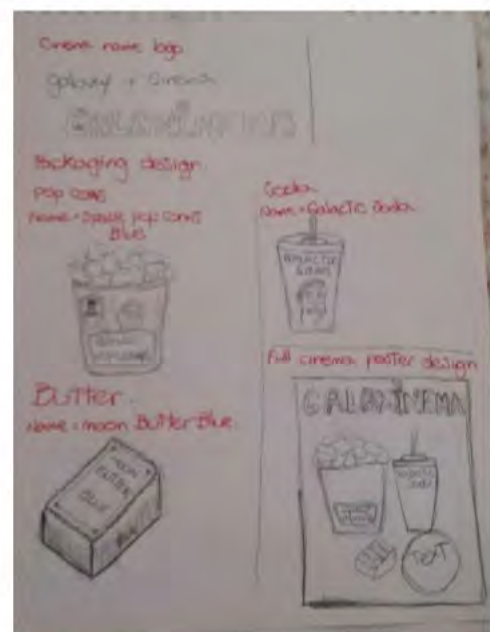 Cinema name logo
galaxy + Cinema
GALAXINEMA
Packaging design.
Pop corns
Name = Space pop corns
Blue
Butter.
Name = moon Butter Blue.
MOON
BUTTER
BLUE
Soda
Name = Galactic Soda
GALACTIC
SODA
Full cinema poster design
GALAXINEMA
TEXT